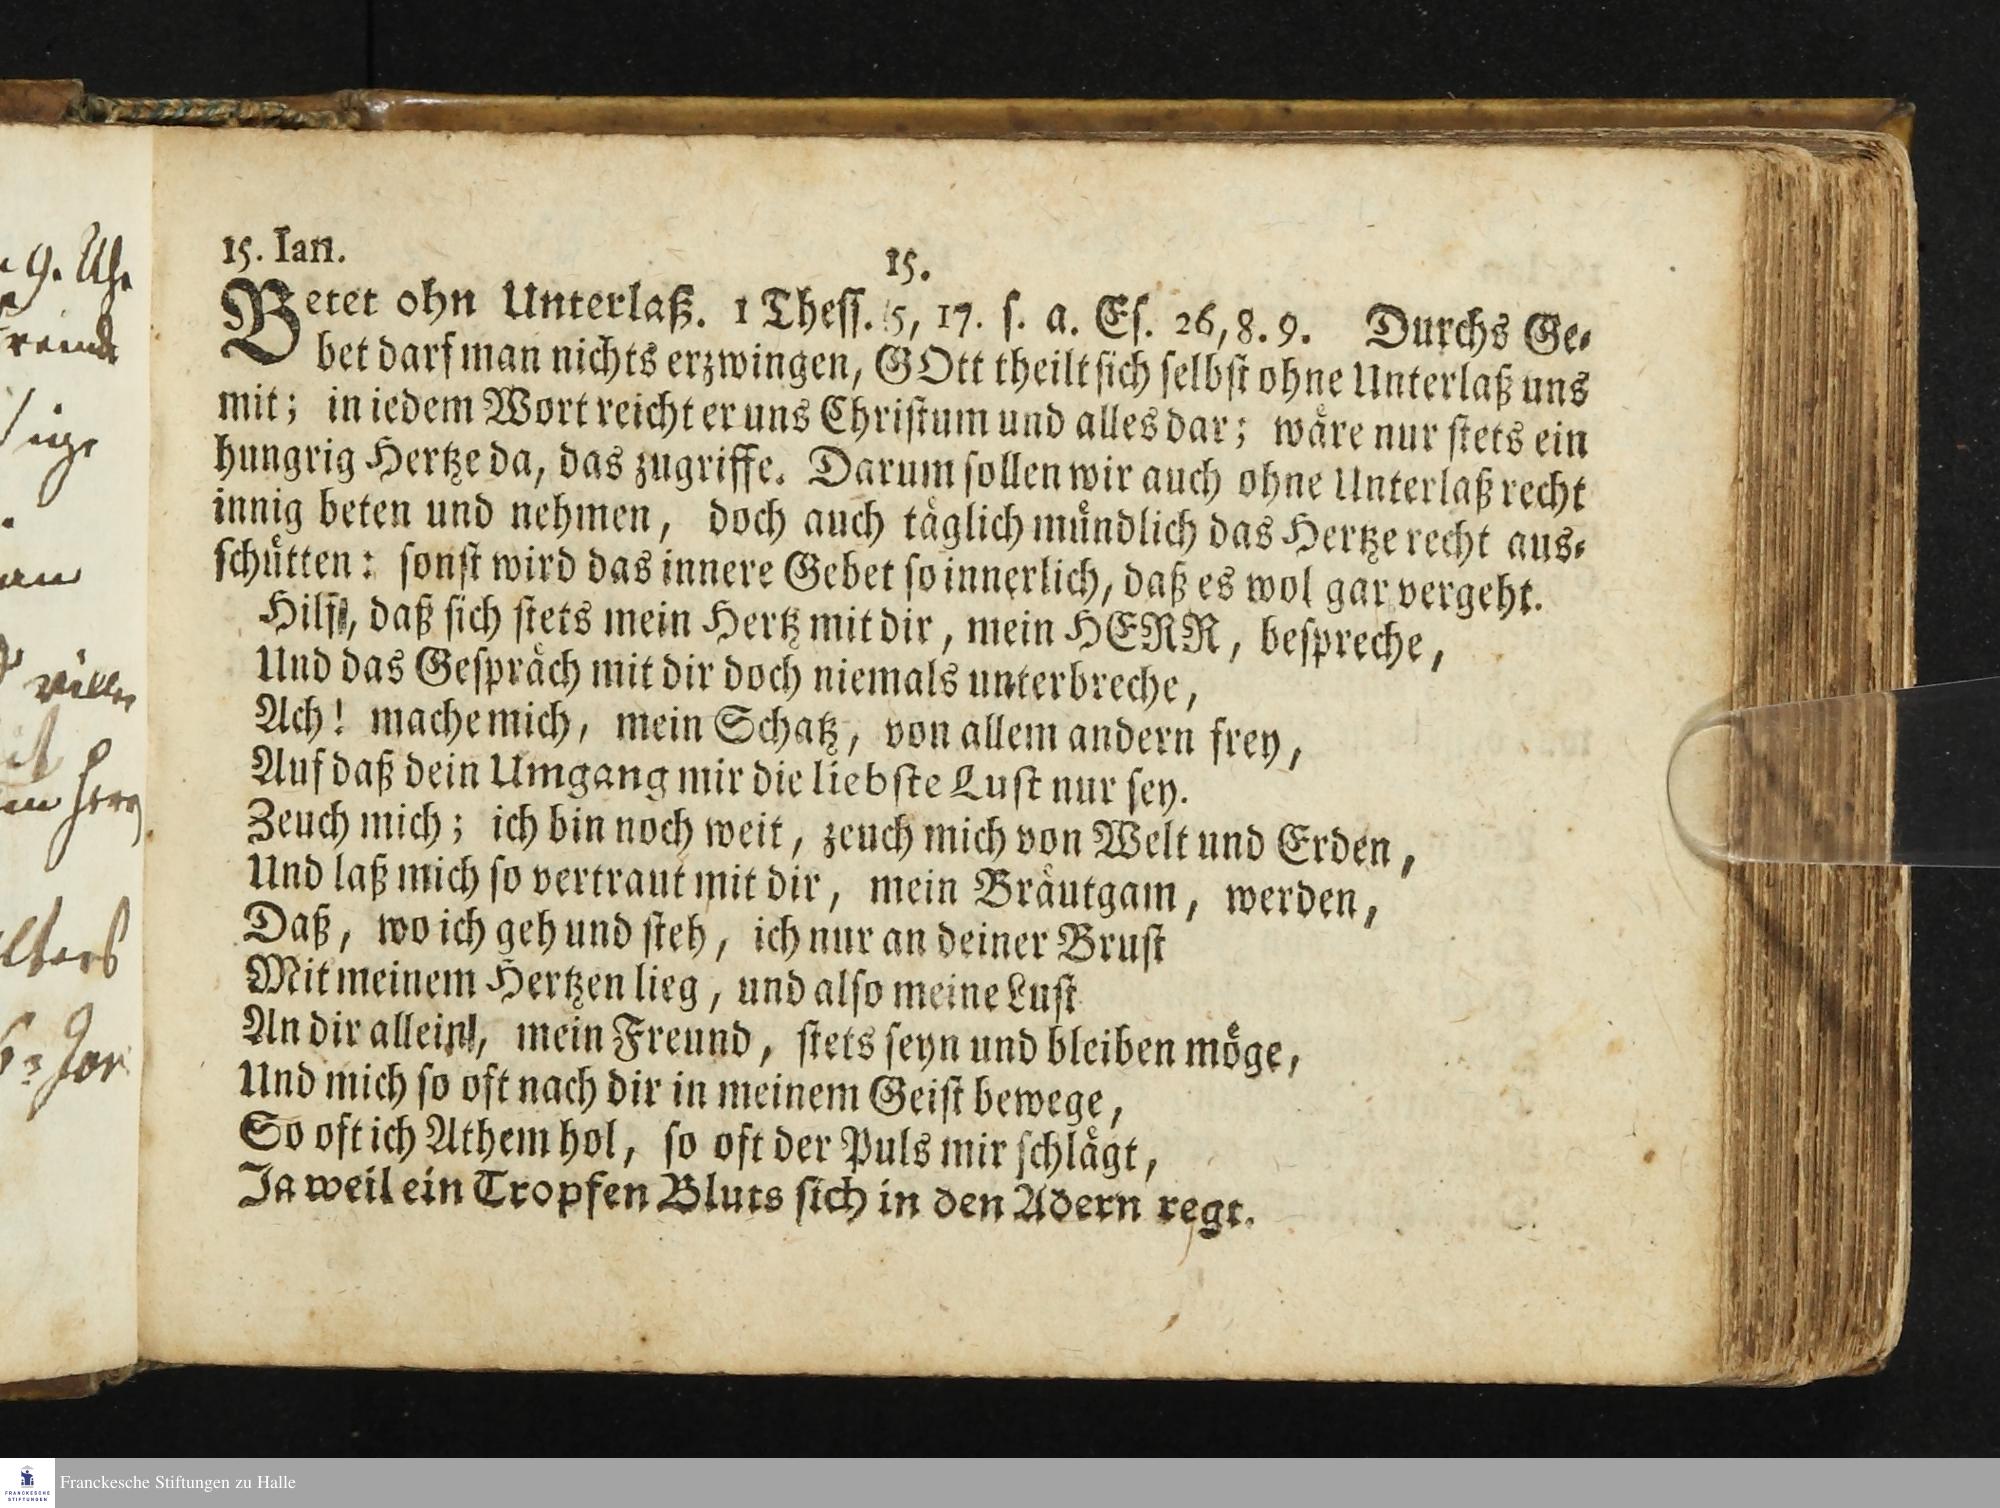 15. Ian.
15.
Betet ohn Unterlaß. 1 Thess. 5, 17. s. a. Es. 26, 8. 9. Durchs Ge-
bet darf man nichts erzwingen, GOtt theilt sich selbst ohne Unterlaß uns
mit; in iedem Wort reicht er uns Christum und alles dar; wäre nur stets ein
hungrig Hertze da, das zugriffe. Darum sollen wir auch ohne Unterlaß recht
innig beten und nehmen, doch auch täglich mündlich das Hertze recht aus-
schütten: sonst wird das innere Gebet so innerlich, daß es wol gar vergeht.
Hilf, daß sich stets mein Hertz mit dir, mein HERR, bespreche,
Und das Gespräch mit dir doch niemals unterbreche,
Ach! mache mich, mein Schatz, von allem andern frey,
Auf daß dein Umgang mir die liebste Lust nur sey.
Zeuch mich; ich bin noch weit, zeuch mich von Welt und Erden,
Und laß mich so vertraut mit dir, mein Bräutgam, werden,
Daß, wo ich geh und steh, ich nur an deiner Brust
Mit meinem Hertzen lieg, und also meine Lust
An dir allein, mein Freund, stets seyn und bleiben möge,
Und mich so oft nach dir in meinem Geist bewege,
So oft ich Athem hol, so oft der Puls mir schlägt,
Ja weil ein Tropfen Bluts sich in den Adern regt.
9. Uhr
FRANCKESCHE
STIFTUNGEN
Franckesche Stiftungen zu Halle